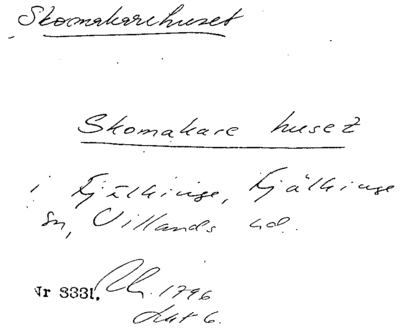 Skomakarehuset
Skomakare huset
i Fjälkinge, Fjälkinge
sn, Villands hd.
Nr 3331. 1796